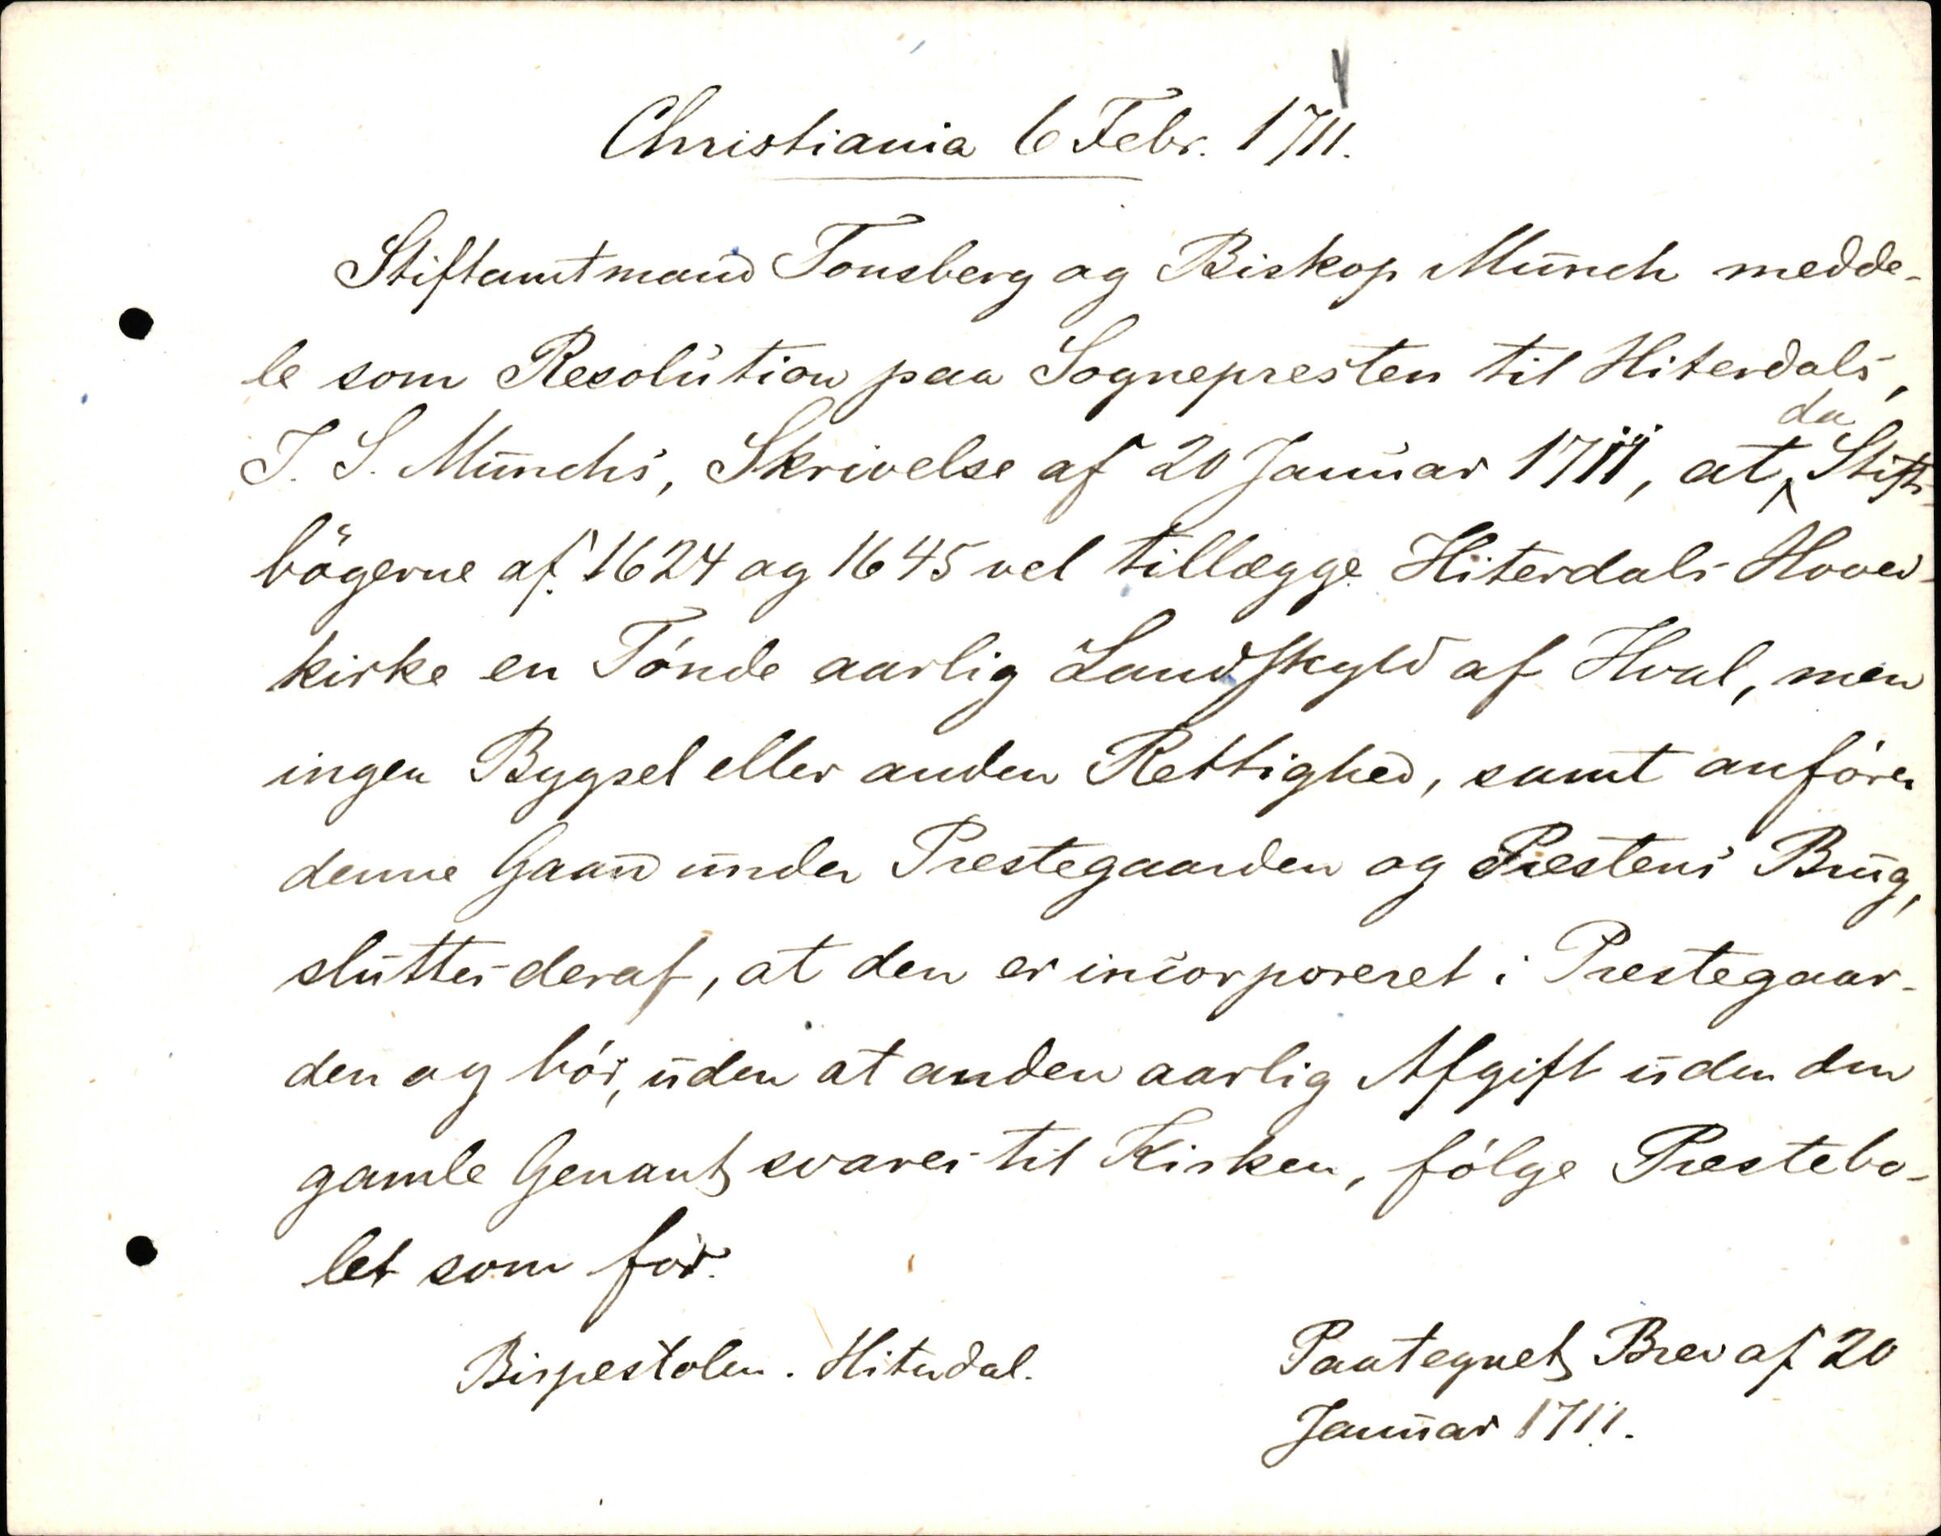 Christiania 6 Febr. 1711.
Stiftamtmand Tonsberg og Biskop Munch medde-
le som Resolution paa Sognepresten til Hiterdals,
J. S. Munchs, Skrivelse af 20 Januar 1711, at da Stifts-
bögerne af 1624 og 1645 vel tillægge Hiterdals Hoved-
kirke en Tönde aarlig Landskyld af Hval, men
ingen Bygsel eller anden Rettighed, samt anförer
denne Gaard under Prestegaarden og Prestens Brug,
sluttes deraf, at den er incorporeret i Prestegaar-
den og bör, uden at anden aarlig Afgift uden den
gamle Genant svares til Kirken, fölge Prestebo-
let som för.
Bispestolen. Hiterdal.
Paategnet Brev af 20
Januar 1711.